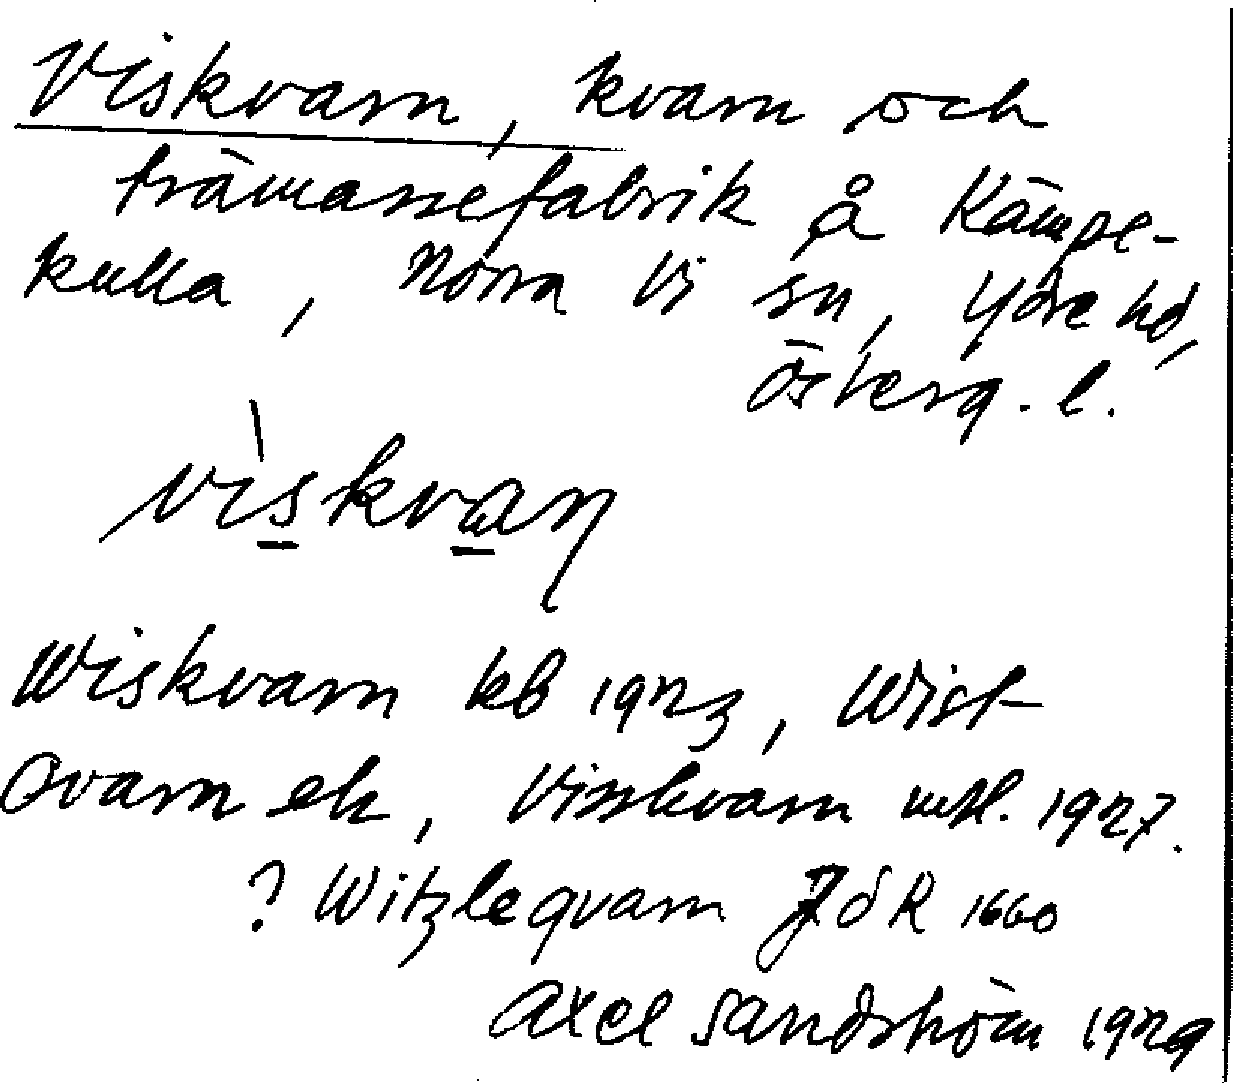 Viskvarn, kvarn och
trämassefabrik å Kämpe-
kulla, Norra Vi sn, Ydre hd,
Österg. l.
viskvaṇ
Wiskvarn kb 1923, Wist
Qvarn ek, Visskvarn mtl. 1927.
? Witzleqvarn JdR 1660
Axel Sandström 1929